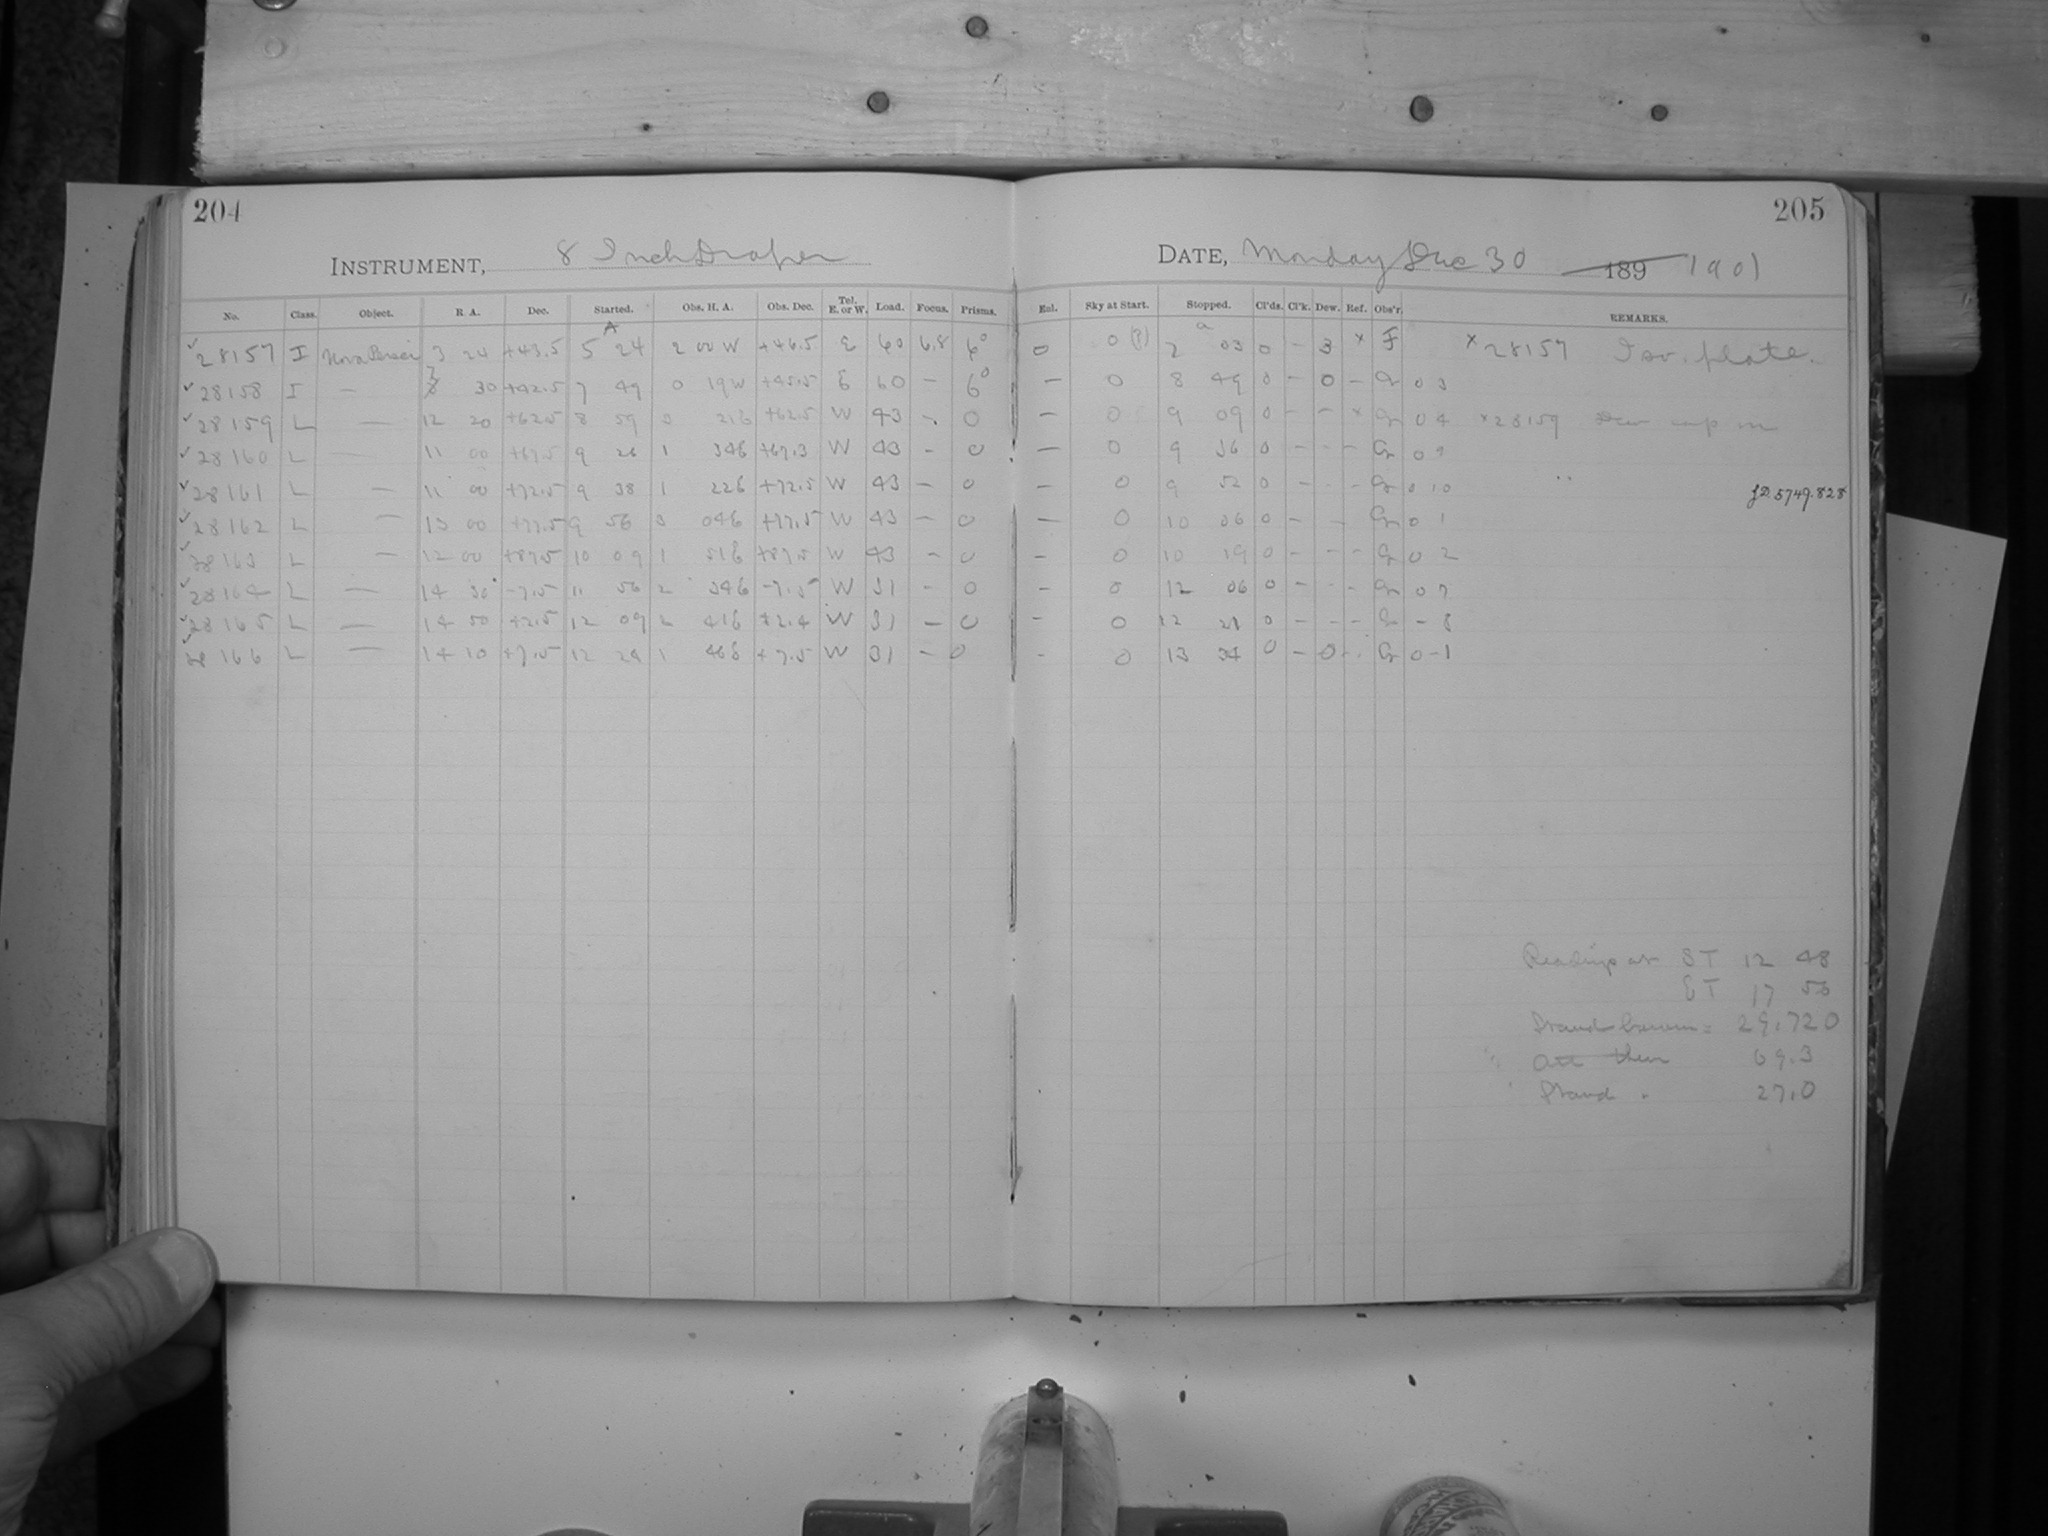 204
INSTRUMENT, 8 Inch Draper
No. Class. Object. R. A. Dec. Started. Obs. H. A. Obs. Dec. Tel. E. or W. Load. Focus. Prisms.
28157 I Nova Persei 3 24 +43.5 5 24 2 00 W +46.5 E 60 6.8 6°
28158 I — 30 +42.5 7 49 0 19W +45.5 E 60 — 6°
28159 L — 12 20 +62.5 8 59 3 21E +62.5 W 43 - 0
28160 L — 11 00 +67.5 9 26 1 34E +67.3 W 43 - 0
28161 L — 11 00 +72.5 9 38 1 22E +72.5 W 43 - 0
28162 L — 13 00 +77.5 9 56 3 04E +77.5 W 43 - 0
28163 L — 12 00 +87.5 10 09 1 51E +87.5 W 43 - 0
28164 L — 14 30 -7.5 11 56 2 34E -7.5 W 31 - 0
28165 L — 14 50 +2.5 12 09 2 41E +2.4 W 31 - 0
28166 L — 14 10 +7.5 12 24 1 46E +7.5 W 31 - 0
205
DATE, Monday Dec 30 189 1901
Enl. Sky at Start. Stopped. Cl'ds. Cl'k. Dew. Ref. Obs'r. REMARKS.
0 0 (?) 2 03 0 - 3 x F x 28157 Isr. plate.
— 0 8 49 0 - 0 - Gr 03
— 0 9 09 0 - - x Gr 04 x 28159 Dew cap on
— 0 9 36 0 - - - Gr 09
— 0 9 52 0 - - - Gr 010 J.D. 5749.828
— 0 10 06 0 - - Gr 01
— 0 10 19 0 - - - Gr 02
— 0 12 06 0 - - - Gr 07
- 0 12 21 0 - - - Gr - 8
- 0 13 34 0 - 0 - Gr 0-1
Readings at ST 12 48
ET 17 50
Stand barom = 29.720
Att ther 69.3
Stand " 27.0